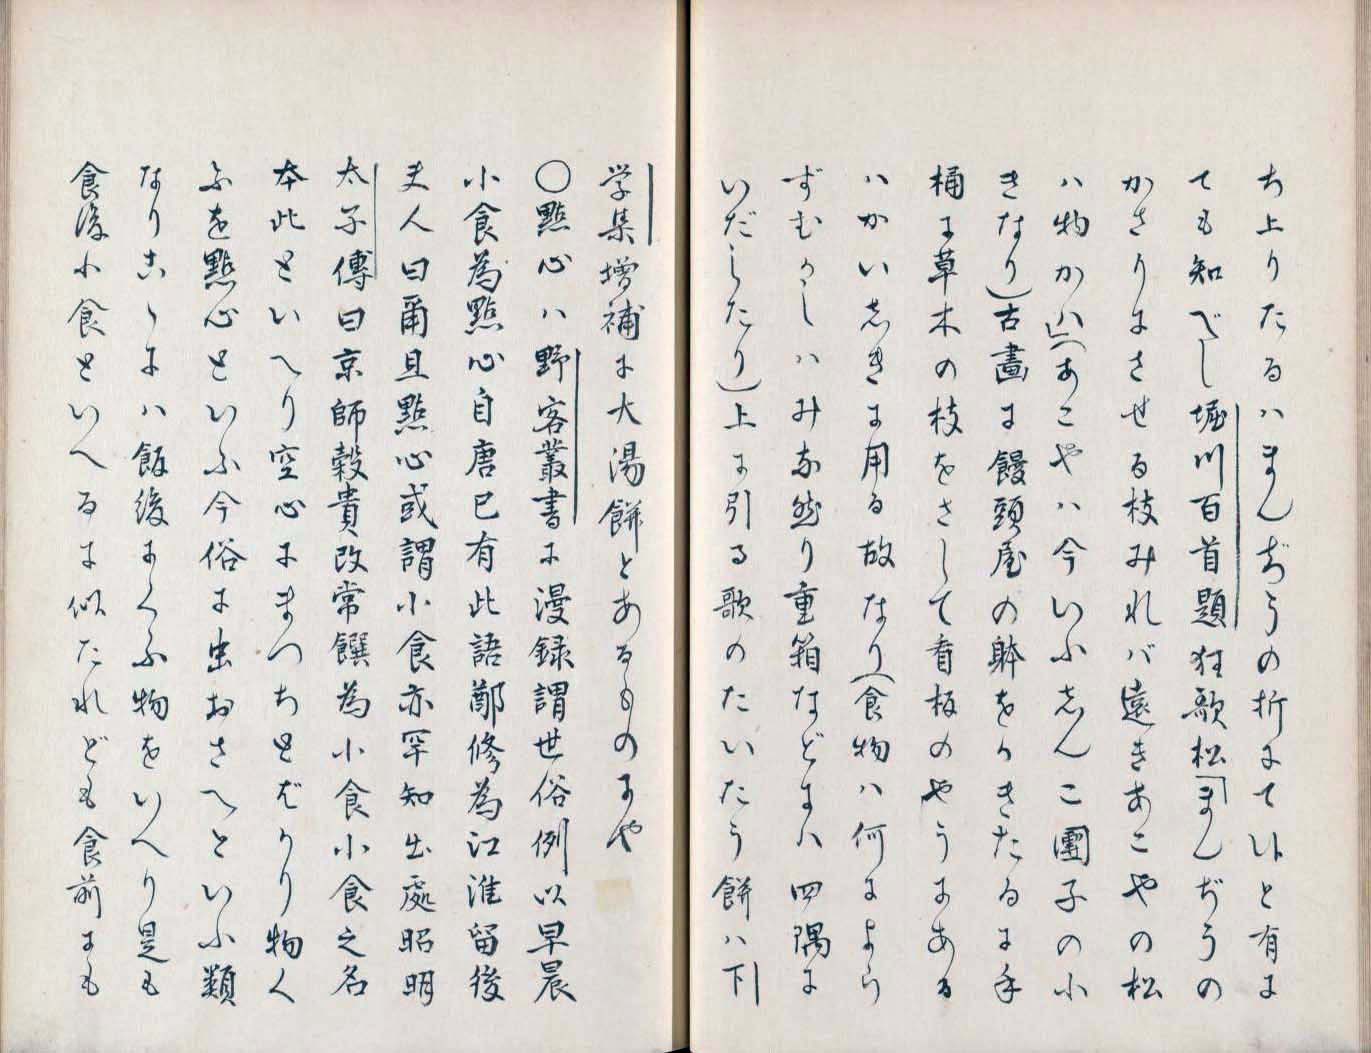 ち上りたるハまんぢうの折にて小と有に
ても知べし堀川百首題狂歌松「まんぢうの
かさりにさせる枝みれバ遠きあこやの松
ハ物かハ」(あこやハ今いふしんこ團子の小
きなり)古畫に饅頭屋の躰をかきたるに手
桶に草木の枝をさして看板のやうにある
ハかいしきに用る故なり(食物ハ何によら
ずむかしハみな然り重箱などにハ四隅に
いだしたり)上に引る歌のたいたう餅ハ下
学集増補に大湯餅とあるものにや
〇點心ハ野客叢書に漫録謂世俗例以早晨
小食為點心自唐已有此語鄭修為江淮留後
夫人曰爾且點心或謂小食亦罕知出處昭明
太子傳曰京師穀貴改常饌為小食小食之名
本此といへり空心にまつちとばかり物く
ふを點心といふ今俗に虫おさへといふ類
なりこゝにハ飯後にくふ物をいへり是も
食後小食といへるに似たれども食前にも